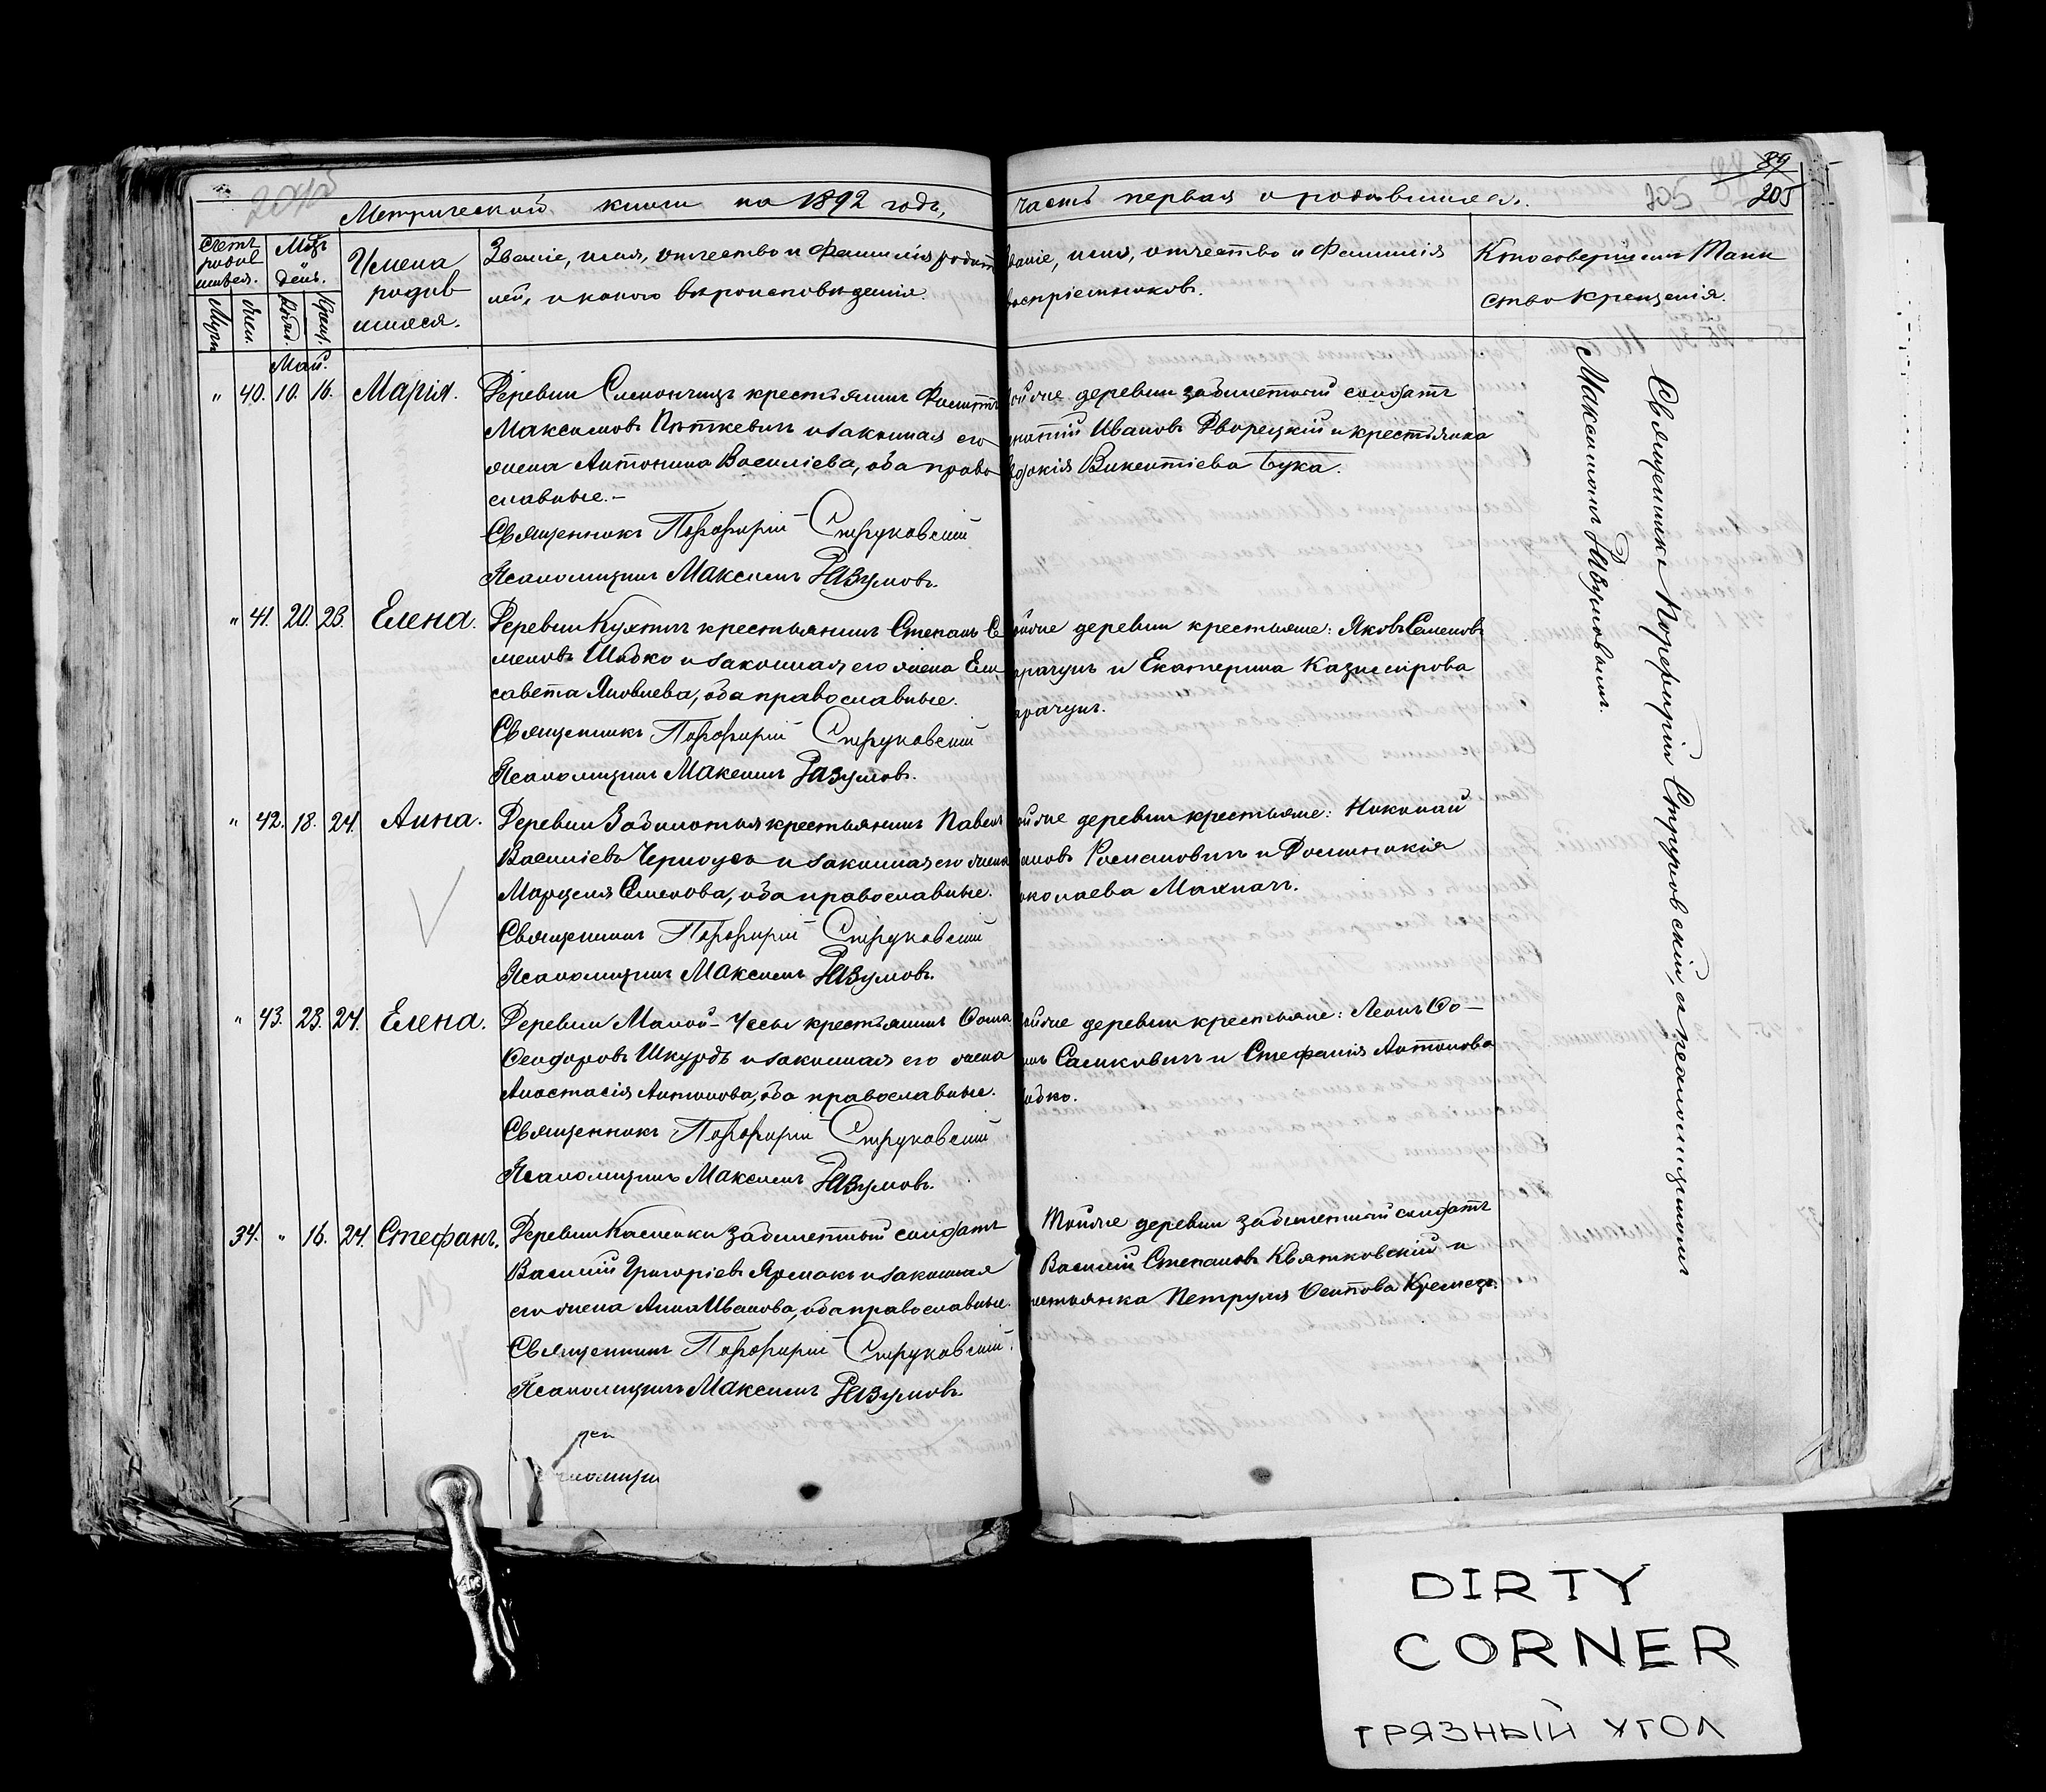 89
205
Метрической книги на 1892 годъ, часть первая о родившихся.
Счетъ родив шихся.
Мѣс. день.
Имена родив шихся.
Званіе, имя, отчество и фамилія родит
лей, и какого вѣроисповѣданія.
Званіе, имя, отчество и фамилія
воспріемниковъ.
Кто совершилъ Таин
ство Крещенія.
Муж.
Жен.
Рожд.
Крещ.
Май.
" 40. 10. 16. Марія.
Деревни Слепончицъ крестьянинъ
Максимовъ Петкевичъ и законная его
жена Антонина Василіева, оба право
славные.-
Священникъ Порфирій Струковскій
Псаломщикъ Максимъ Разумовъ.
деревни забилетный солдатъ
Ивановъ Дворецкій и крестьянка
Викентіева Бука.
Священникъ Порфирій Струковскій, съ псаломщикомъ
Максимомъ Разумовымъ.
" 41. 20. 23. Елена.
Деревни Кухтичъ крестьянинъ Степанъ Се
меновъ Шидко и законная его жена Ели
савета Яковлева, оба православные.
Священникъ Порфирій Струковскій
Псаломщикъ Максимъ Разумовъ.
деревни крестьяне: Яковъ Семеновъ
и Екатерина Казимірова
" 42. 18. 24. Анна.
Деревни Заболотья крестьянинъ Павелъ
Василіевъ Черноусъ и законная его жена
Марцеля Семенова, оба православные.
Священникъ Порфирій Струковскій
Псаломщикъ Максимъ Разумовъ.
деревни крестьяне: Николай
Романовичъ и Домникія
Махначъ.
" 43. 23. 24. Елена.
Деревни Малой-Уссы крестьянинъ Ѳома
Ѳеодоровъ Шкурдь и законная его жена
Анастасія Антонова, оба православные.
Священникъ Порфирій Струковскій
Псаломщикъ Максимъ Разумовъ.
деревни крестьяне: Леонъ Ѳо-
Самковичъ и Стефанія Антонова
34. " 16. 24. Стефанъ.
Деревни Касиловки забилетный солдатъ
Василій Григоріевъ Ярмакъ и законная
его жена Анна Иванова, оба православные.
Священникъ Порфирій Струковскій
Псаломщикъ Максимъ Разумовъ.
Тойже деревни забилетный солдатъ
Василій Степановъ Квятковскій и
Петруля Осипова Кремецъ.
DIRTY
CORNER
ГРЯЗНЫЙ УГОЛ